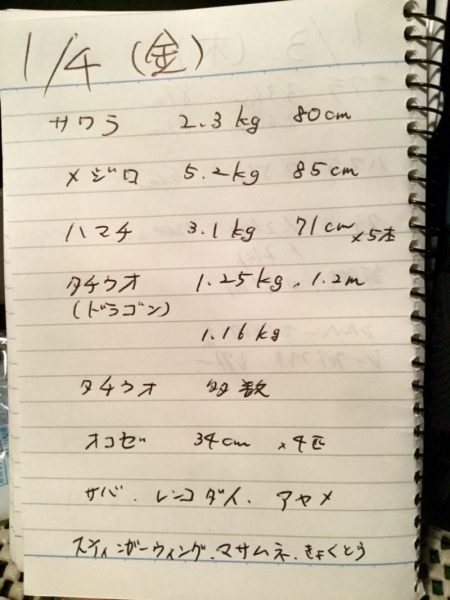 1/4 (金)
サワラ 2.3kg 80cm
メジロ 5.2kg 85cm
ハマチ 3.1kg 71cm ×5本
タチウオ 1.25kg、1.2m
(ドラゴン)
1.16kg
タチウオ 多数
オコゼ 34cm ×4匹
サバ、レンコダイ、アヤメ
スティンガーウィング、マサムネ、きょくとう